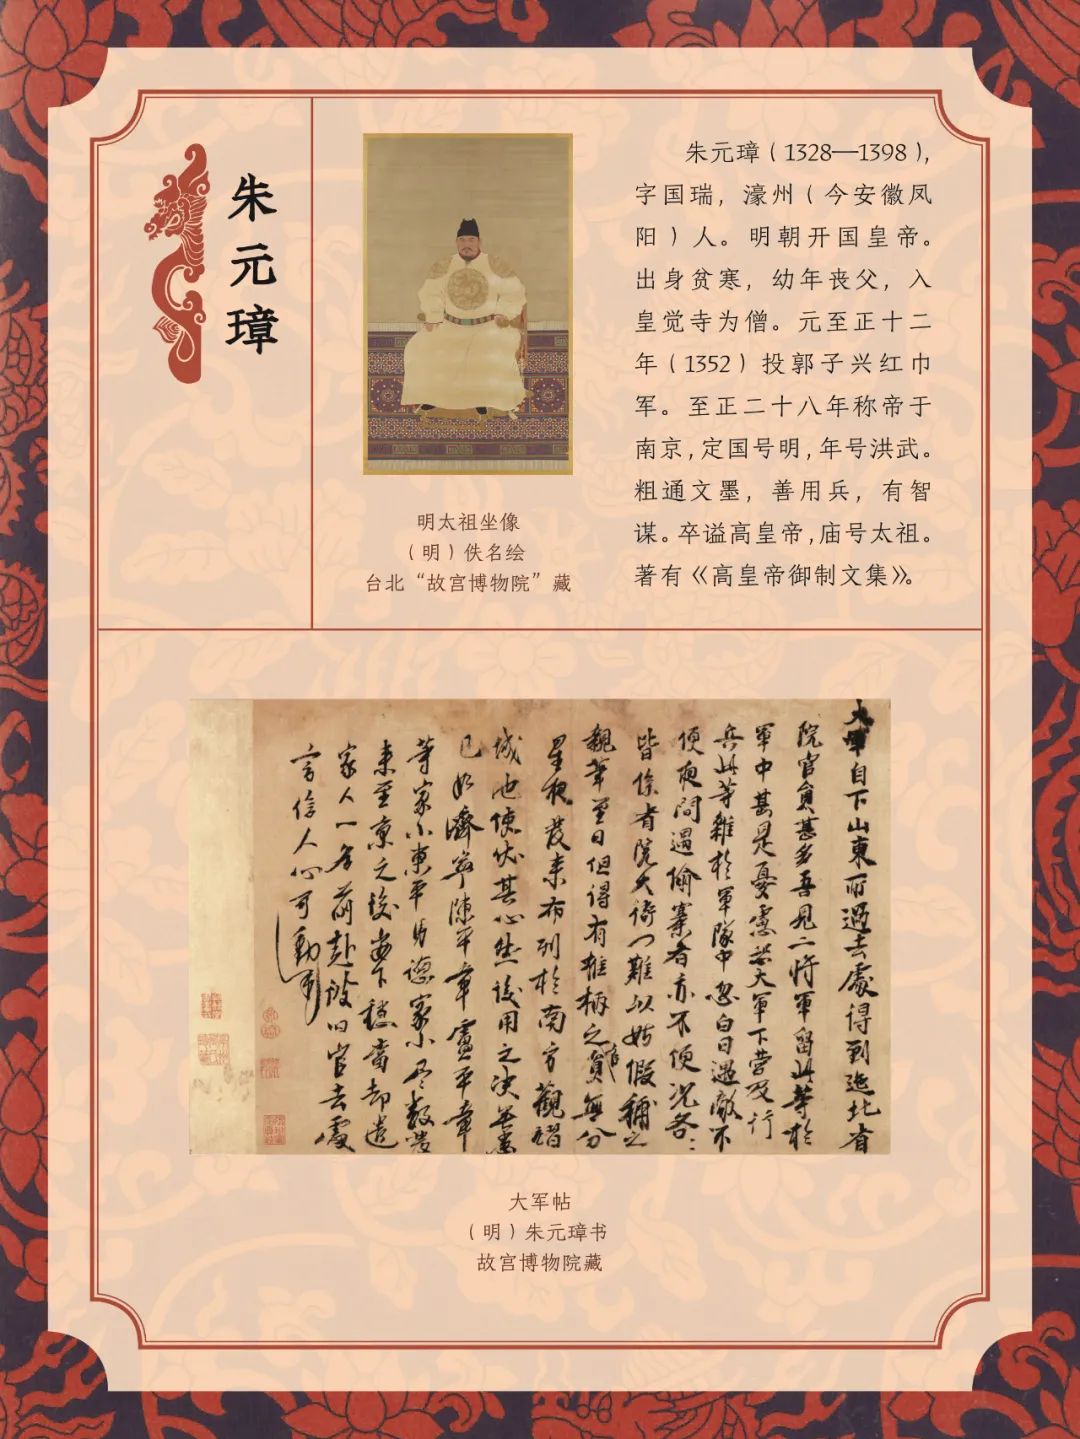 朱元璋
明太祖坐像
（明）佚名绘
台北“故宫博物院”藏
朱元璋（1328—1398），
字国瑞，濠州（今安徽凤
阳）人。明朝开国皇帝。
出身贫寒，幼年丧父，入
皇觉寺为僧。元至正十二
年（1352）投郭子兴红巾
军。至正二十八年称帝于
南京，定国号明，年号洪武。
粗通文墨，善用兵，有智
谋。卒谥高皇帝，庙号太祖。
著有《高皇帝御制文集》。
大軍自下山東所過去處得到迤北省
院官員甚多吾見二將軍留此等於
軍中甚是憂慮恐大軍下營及行
兵此等雜於軍隊中忽白日遇敵不
便夜間遇偷寨者亦不便況各:
皆係省院大衙門難以姑假補之
親筆至日但得有椎柄之員無分
星夜發來布列於南方觀玩
城池使伏其心然後用之決無患
已如濟寧陳平章盧平章
等家小東平馬德家小尽數發
來至京之後安下穩當却遣
家人一名前赴彼旧官去處
言信人心可動
大军帖
（明）朱元璋书
故宫博物院藏